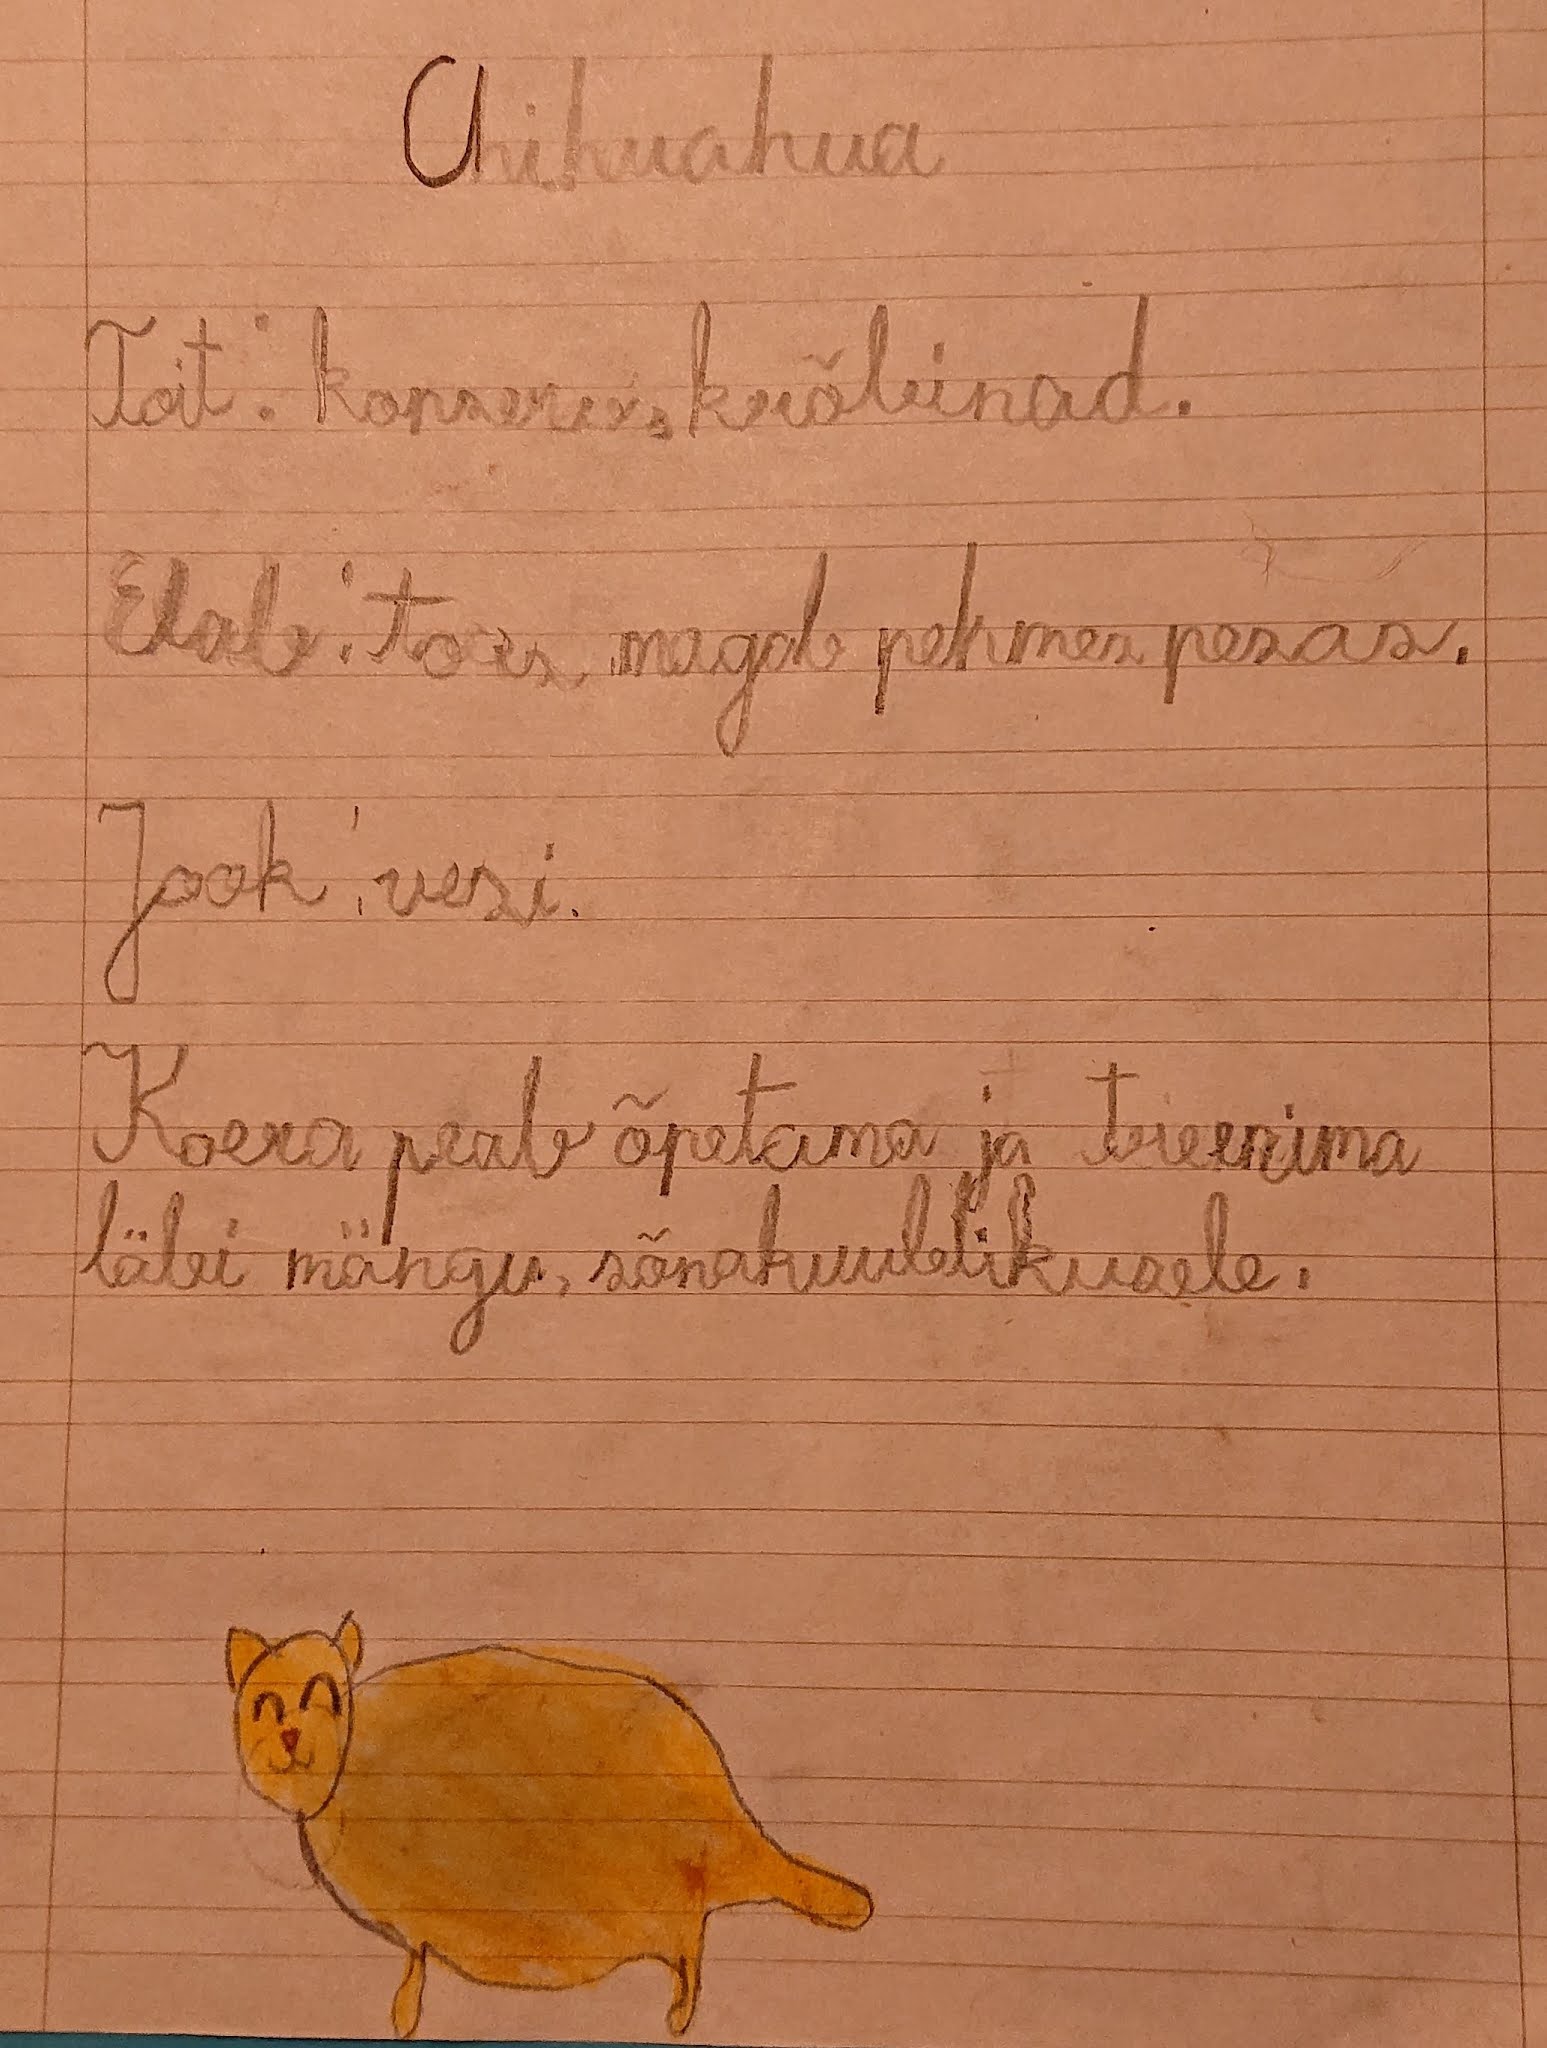 Chihuahua
Toit: konserv, krõbinad.
Elab: toas, magab pehmes pesas.
Jook: vesi.
Koera peab õpetama ja treenima
läbi mängu, sõnakuulelikusele.